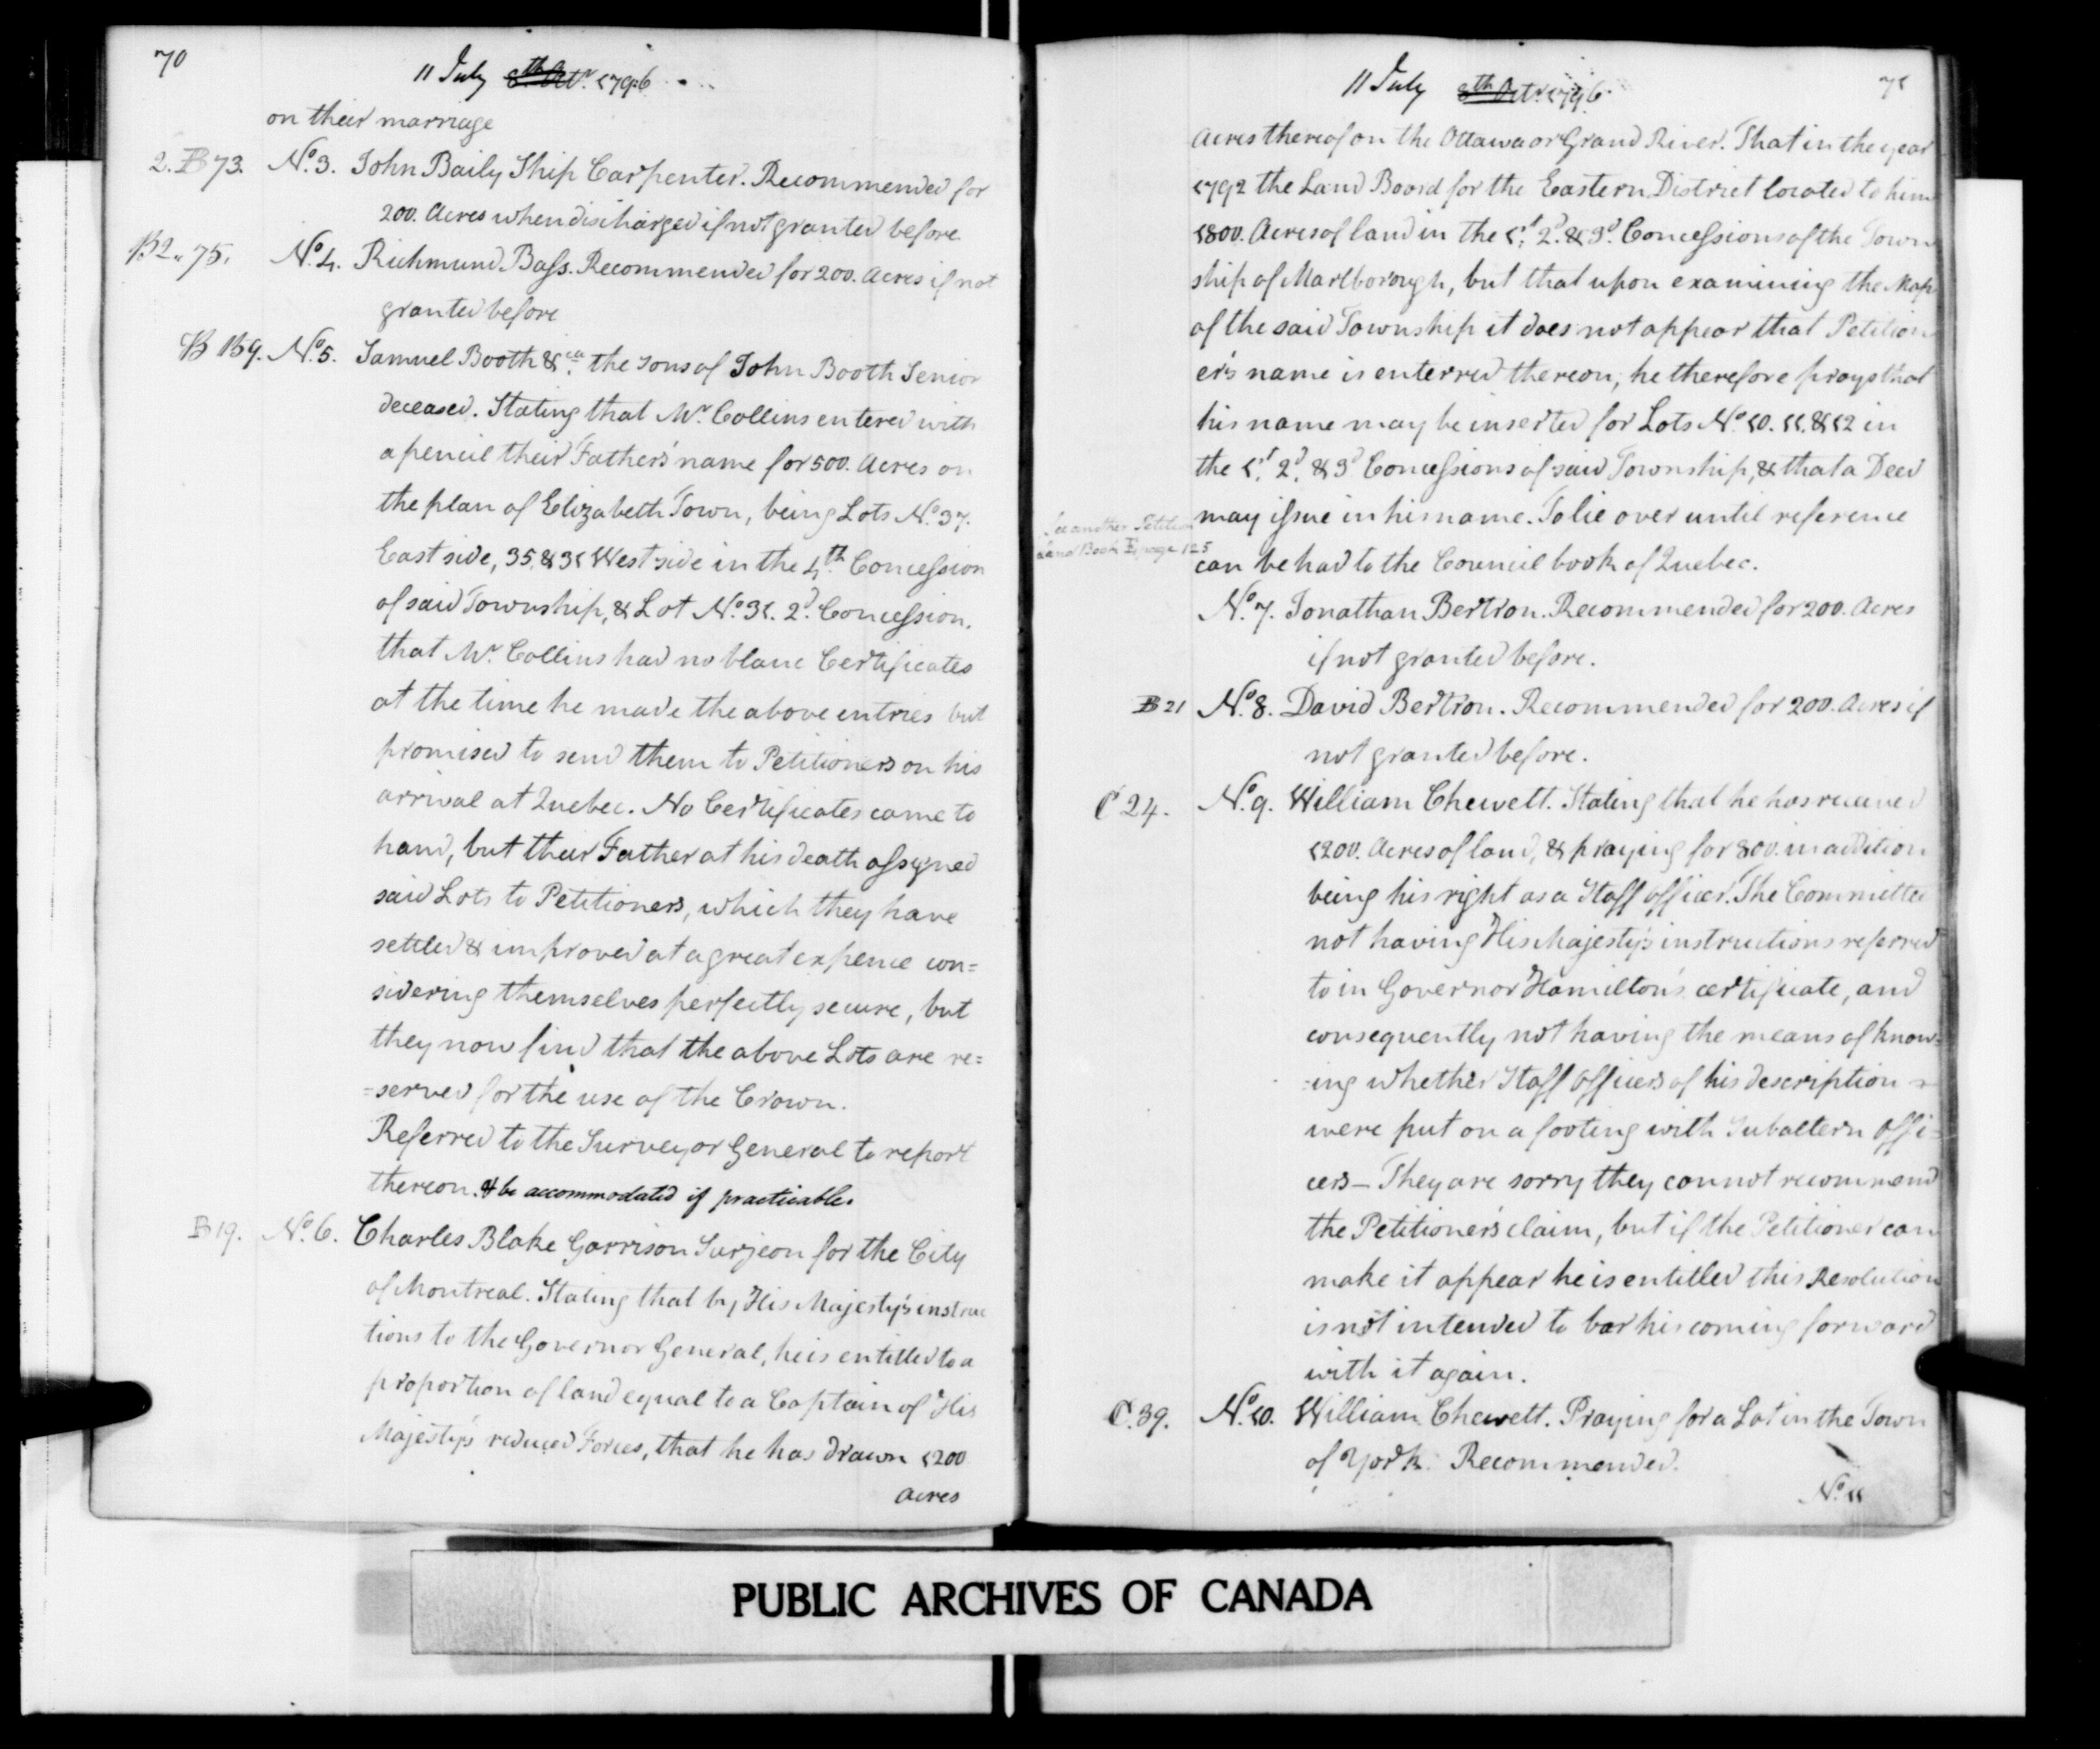 70
11 July 8th Octr. 1796
on their marriage
2. B 73. No. 3. John Baily Ship Carpenter. Recommended for
200. Acres when discharged if not granted before
B 2. 75. No. 4. Richmund Bass. Recommended for 200. Acres if not
granted before
B 159. No. 5. Samuel Booth &ca. the sons of John Booth Senior
deceased. Stating that Mr. Collins entered with
a pencil their Father's name for 500. Acres on
the plan of Elizabeth Town, being Lots No. 37.
East side, 35, & 31 West side in the 4th. Concession
of said Township, & Lot No. 31. 2d. Concession.
that Mr. Collins had no blanc Certificates
at the time he made the above entries but
promised to send them to Petitioners on his
arrival at Quebec. No Certificates came to
hand, but their Father at his death assigned
said Lots to Petitioners, which they have
settled & improved at a great expence con=
sidering themselves perfectly secure, but
they now find that the above Lots are re=
=served for the use of the Crown.
Referred to the Surveyor General to report
thereon. & be accommodated if practicable.
B 19. No. 6. Charles Blake Garrison Surjeon for the City
of Montreal. Stating that by His Majesty's instruc
tions to the Governor General, he is entitled to a
proportion of land equal to a Captain of His
Majesty's reduced Forces, that he has drawn 1200
acres
11 July 8th Octr. 1796
71
Acres thereof on the Ottawa or Grand River. That in the year
1792 the Land Board for the Eastern District located to him
1800. Acres of land in the 1st. 2d. & 3d. Concessions of the Town
ship of Marlborough, but that upon examining the Map
of the said Township it does not appear that Petition
er's name is enterred thereon, he therefore prays that
his name may be inserted for Lots No. 10. 11. & 12 in
the 1st. 2d. & 3d Concessions of said Township, & that a Deed
may issue in his name. To lie over until reference
can be had to the Council book of Quebec.
See another Petition
Land Book E page 125
No. 7. Jonathan Bertron. Recommended for 200. Acres
if not granted before.
B 21 No. 8. David Bertron. Recommended for 200. Acres if
not granted before.
C 24. No. 9. William Chewett. Stating that he has received
1200. Acres of land, & praying for 800. in addition
being his right as a Staff officer. The Committee
not having His Majesty's instructions referred
to in Governor Hamilton's certificate, and
consequently not having the means of know=
=ing whether Staff Officers of his description
were put on a footing with Subaltern Offi=
cers – They are sorry they cannot recommend
the Petitioner's claim, but if the Petitioner can
make it appear he is entitled this Resolution
is not intended to bar his coming forward
with it again.
C. 39. No. 10. William Chewett. Praying for a Lot in the Town
of York. Recommended.
No. 11
PUBLIC ARCHIVES OF CANADA